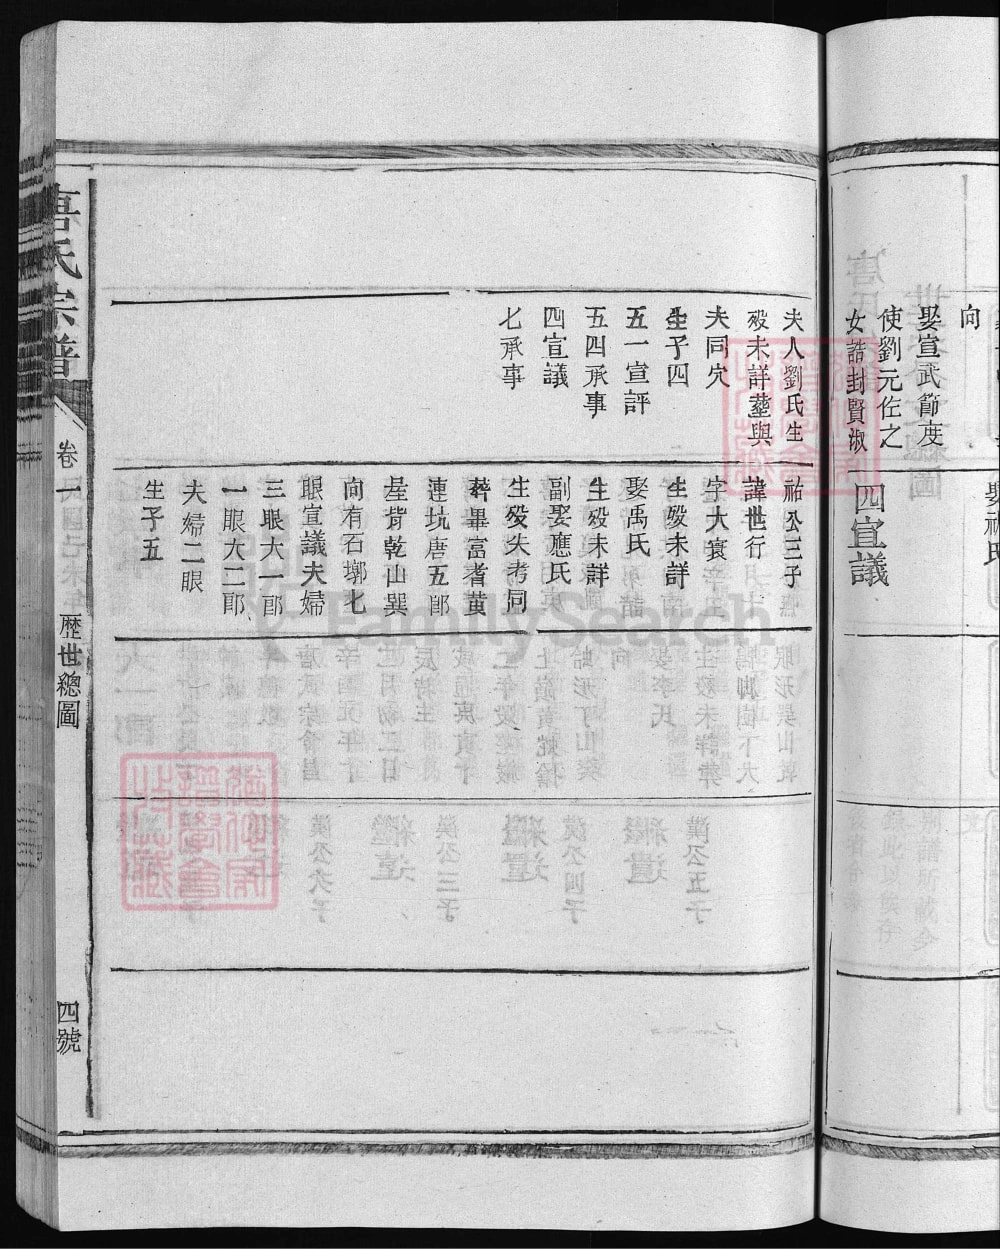 向
娶宣武節度
使劉元佐之
女誥封賢淑
四宣議
夫人劉氏生
歿未詳塟與
夫同穴
生子四
五一宣評
五四承事
四宣議
七承事
祐公三子
諱世行
字大寰
生歿未詳
娶禹氏
生歿未詳
副娶應氏
生歿失考同
葬畢富耆黃
連坑唐五郎
屋背乾山巽
向有石墎七
眼宣議夫婦
三眼大一郎
一眼大二郎
夫婦二眼
生子五
唐氏宗譜
卷一
歷世總圖
四號
FamilySearch